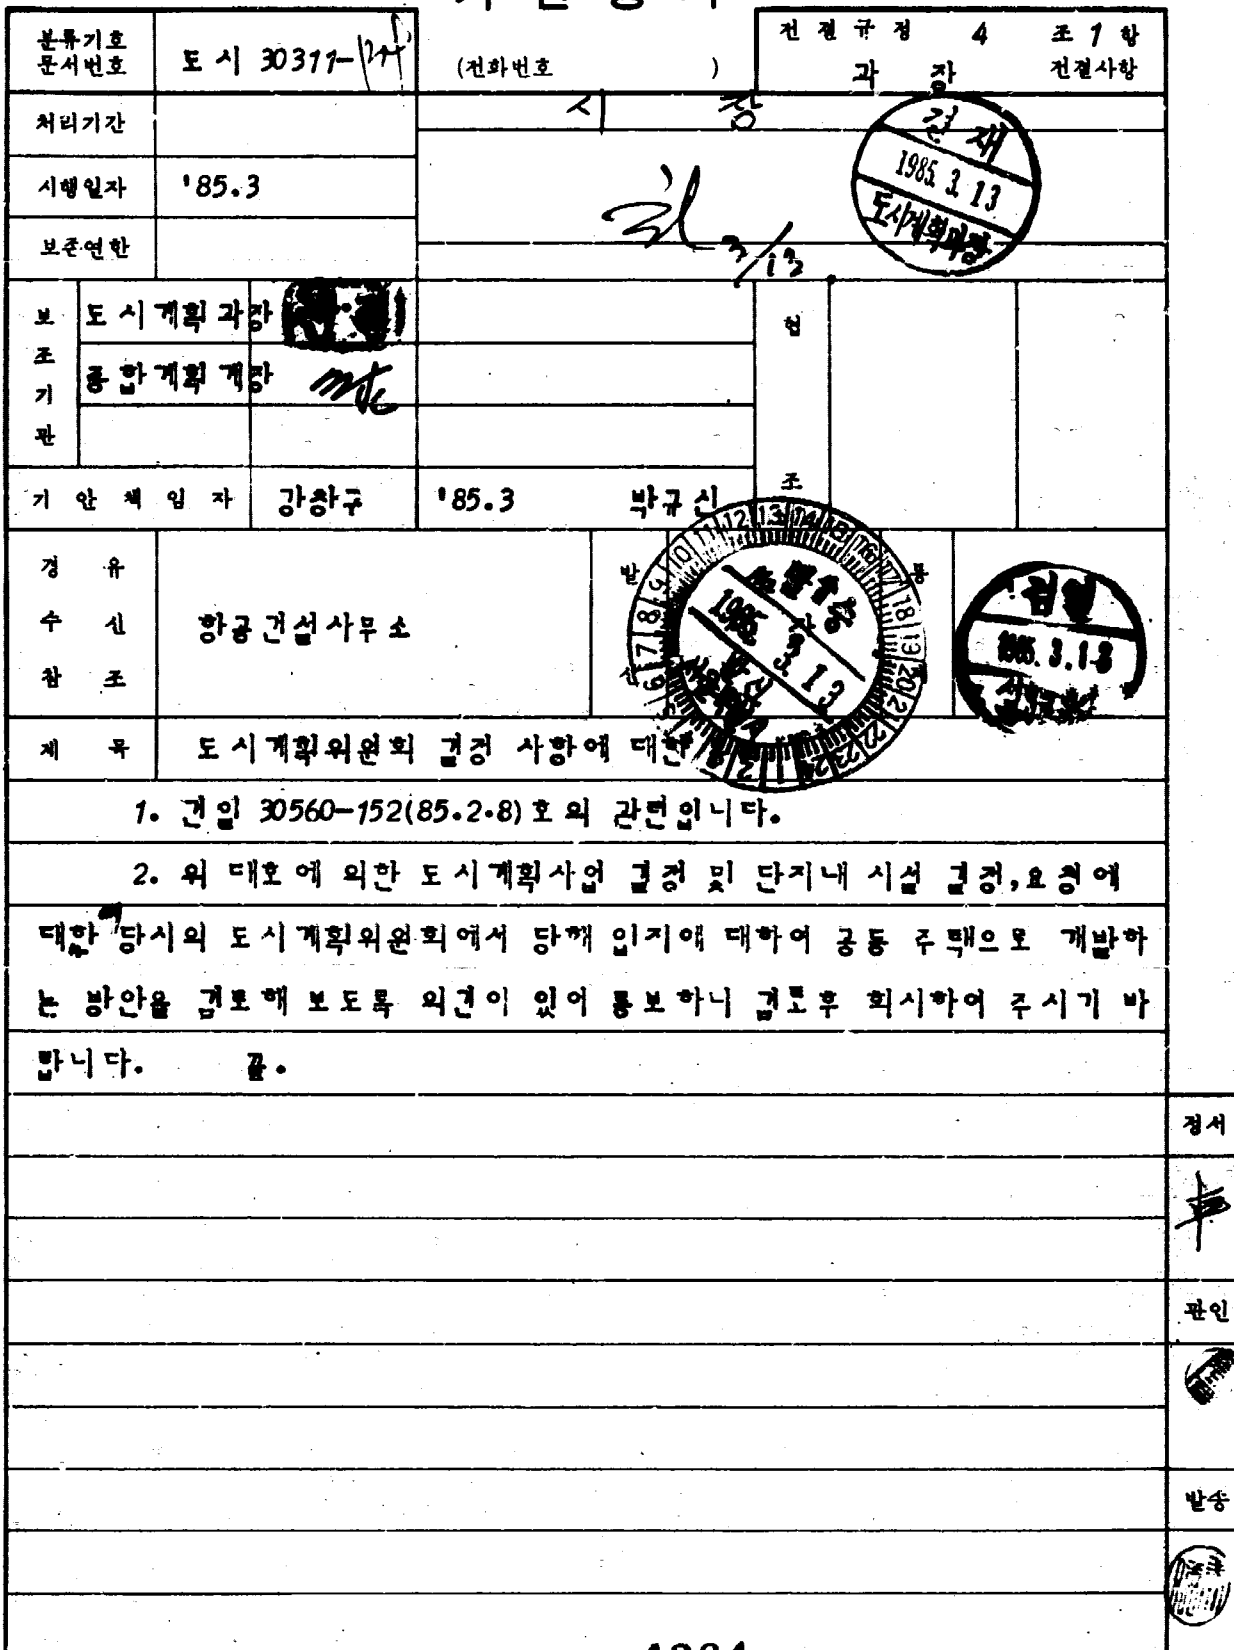 분류기호
문서번호
도시 30311-
(전화번호 )
전결규정 4 조 1 항
과 장 전결사항
처리기간
시 장
결재
1985. 3. 13
도시계획과장
시행일자
'85.3
보존연한
보조기관
도시계획과장
종합계획계장
협조
기안책임자
강창구
'85.3
박규신
경유
수신
참조
항공건설사무소
발
통
1985. 3. 13
검열
1985. 3. 1
제 목
도시계획위원회 결정 사항에 대한
1. 건일 30560-152(85.2.8)호의 관련입니다.
2. 위 대호에 의한 도시계획사업 결정 및 단지내 시설 결정,요청에
대한 당시의 도시계획위원회에서 당해 입지에 대하여 공동 주택으로 개발하
는 방안을 검토해 보도록 의견이 있어 통보하니 검토후 회시하여 주시기 바
랍니다. 끝.
정서
관인
발송